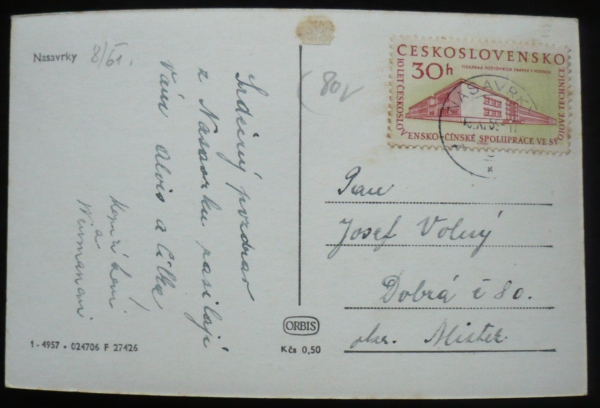 Nasavrky
8/61.
Srdečný pozdrav
z Nasavrku zasílají
Vám Alois a Cilka
a
(80,-
ČESKOSLOVENSKO
30h
10 LET ČESKOSLOVENSKO-ČÍNSKÉ SPOLUPRÁCE VE SV
NASAVRKY
Pan
Josef Volný
Dobrá č 80.
okr. Místek
ORBIS
Kčs 0,50
1 - 4957 - 024706 F 27426